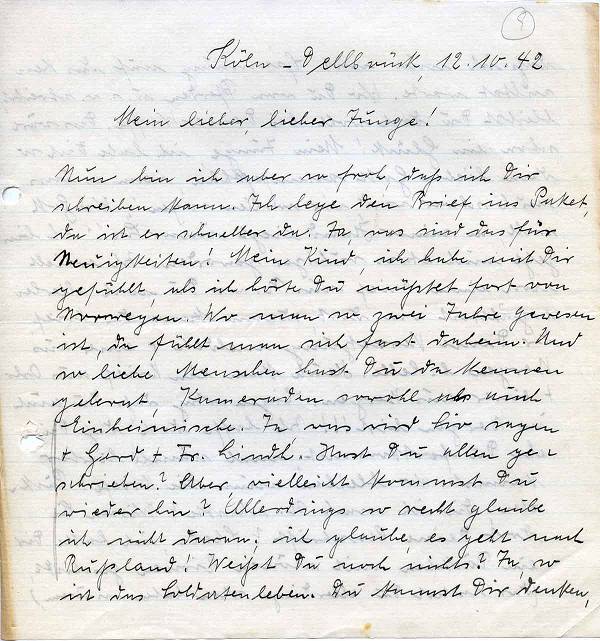 8
Köln - Dellbrück, 12.10.42
Mein lieber, lieber Junge!
Nun bin ich aber so froh, daß ich Dir
schreiben kann. Ich lege den Brief ins Paket,
da ist er schneller da. Ja, was sind das für
Neuigkeiten! Mein Kind, ich habe mit Dir
gefühlt, als ich hörte Du müßtet fort von
Norwegen. Wo man so zwei Jahre gewesen
ist, da fühlt man sich fast daheim. Und
so liebe Menschen hast Du da kennen
gelernt, Kameraden sowohl als auch
Einheimische. Ja, was wird Liv sagen
+ Gerd + Fr. Lindh. Hast Du allen ge-
schrieben? Aber, vielleicht kommst Du
wieder hin? Allerdings so recht glaube
ich nicht daran; ich glaube, es geht nach
Rußland! Weißt Du noch nichts? Ja, so
ist das Soldatenleben. Du kannst Dir denken,